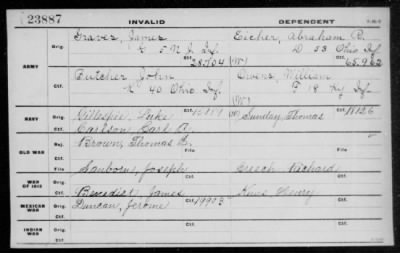 23887 INVALID DEPENDENT
Graver, James Eicher, Abraham B.
ARMY Orig. K 5 N J Inf. D 53 Ohio Inf.
28.704 (W) Ctf. 65.962
Butcher John Owens, William
Ctf. K 40 Ohio Inf. F 18 Ky Inf.
(W)
NAVY Orig. Gillespie, Luke (W) Sunday, Thomas Ctf. 18126
Ctf. Carlson Carl A.
OLD WAR Rej. Brown, Thomas
File File
Sanborn, Joseph Creech Richard
WAR OF 1812 Orig.
Ctf. Benedict, James Henry
MEXICAN WAR Orig. Duncan, Jerome Ctf. 19903 Ctf.
Ctf.
INDIAN WAR Orig.
Ctf.